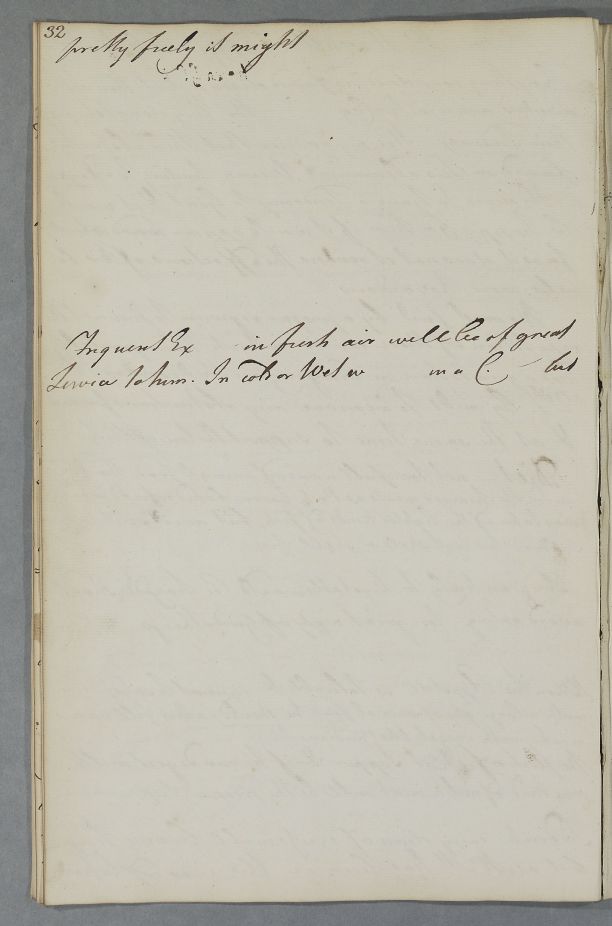 32
pretty freely it might
Frequent Ex in fresh air will be of great
Service to him. In cold or Wet w in a C. but